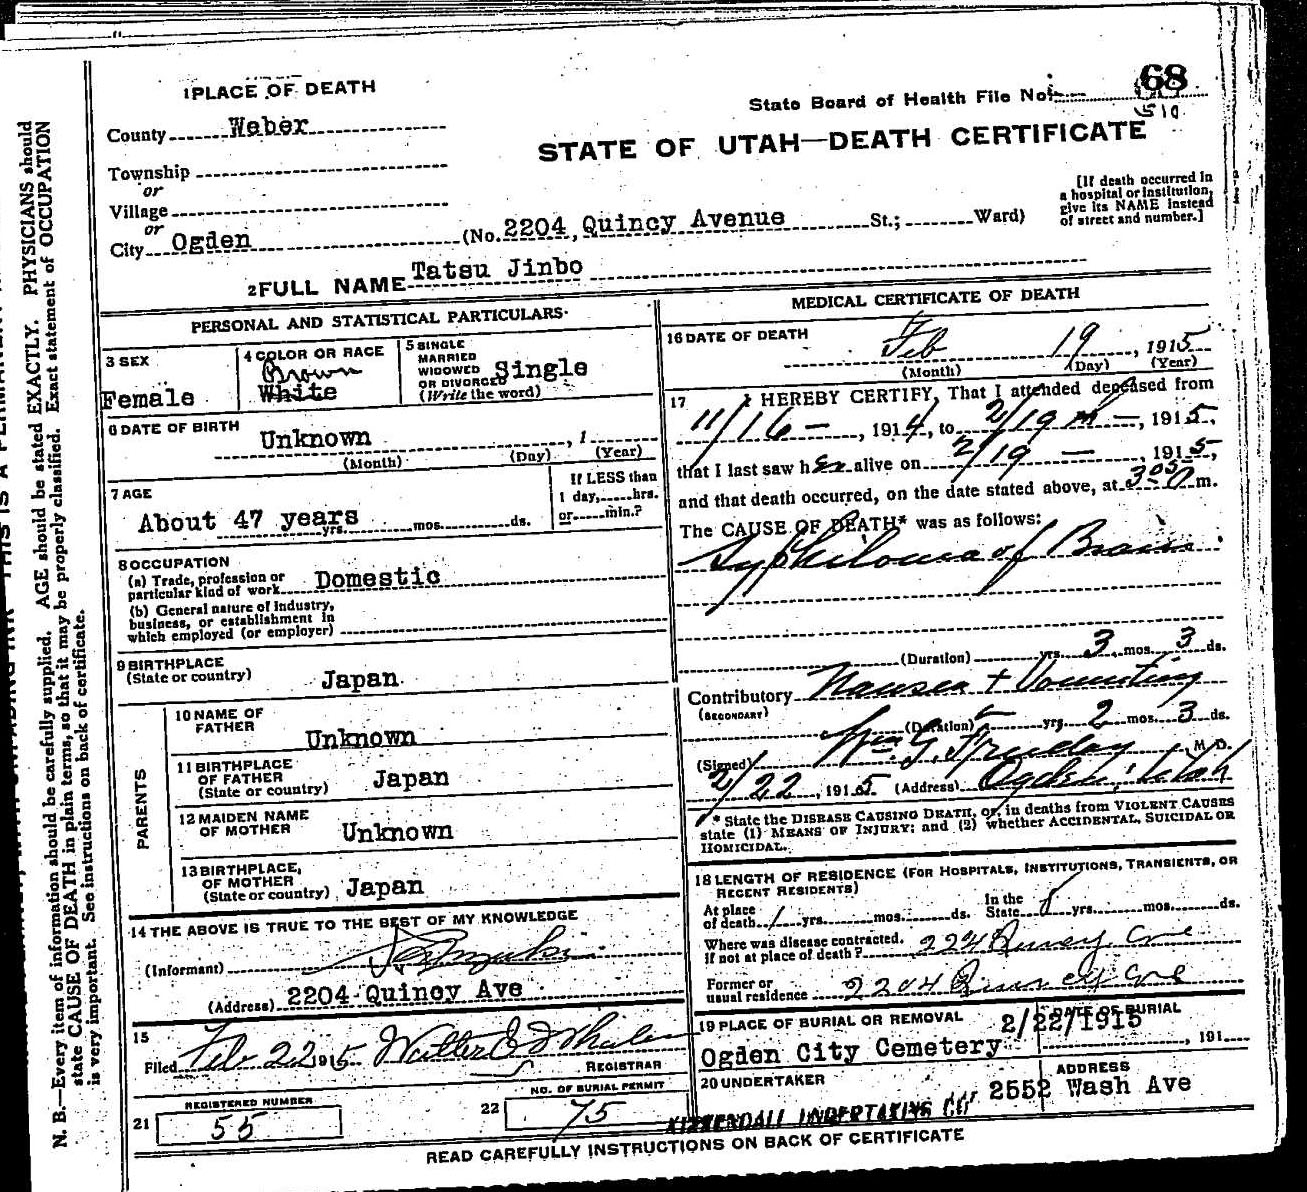 1 PLACE OF DEATH
State Board of Health File No. 68
510
County Weber
STATE OF UTAH—DEATH CERTIFICATE
Township
or
Village
or
City Ogden (No. 2204, Quincy Avenue St.; Ward)
[If death occurred in
a hospital or institution,
give its NAME instead
of street and number.]
2 FULL NAME Tatsu Jinbo
PERSONAL AND STATISTICAL PARTICULARS
3 SEX
Female
4 COLOR OR RACE
Brown
White
5 SINGLE
MARRIED
WIDOWED
OR DIVORCED
(Write the word)
Single
6 DATE OF BIRTH
Unknown , 1
(Month) (Day) (Year)
7 AGE
About 47 years
yrs. mos. ds.
If LESS than
1 day, hrs.
or min.?
8 OCCUPATION
(a) Trade, profession or
particular kind of work Domestic
(b) General nature of industry,
business, or establishment in
which employed (or employer)
9 BIRTHPLACE
(State or country) Japan
PARENTS
10 NAME OF
FATHER
Unknown
11 BIRTHPLACE
OF FATHER
(State or country) Japan
12 MAIDEN NAME
OF MOTHER Unknown
13 BIRTHPLACE,
OF MOTHER
(State or country) Japan
14 THE ABOVE IS TRUE TO THE BEST OF MY KNOWLEDGE
(Informant)
(Address) 2204 Quincy Ave
15
Filed Feb 22 1915 Walter
REGISTRAR
REGISTERED NUMBER
21 55
NO. OF BURIAL PERMIT
22 75
MEDICAL CERTIFICATE OF DEATH
16 DATE OF DEATH
Feb 19, 1915
(Month) (Day) (Year)
17 I HEREBY CERTIFY, That I attended deceased from
11/16 — , 1914, to 2/19 — , 1915,
that I last saw her alive on 2/19 — , 1915,
and that death occurred, on the date stated above, at 3 m.
The CAUSE OF DEATH* was as follows:
Syphiloma of Brain
(Duration) yrs. 3 mos. 3 ds.
Contributory Nausea + Vomiting
(SECONDARY)
(Duration) yrs. 2 mos. 3 ds.
(Signed) Wm. G. M. D.
2/22, 1915 (Address) Ogden, Utah
* State the DISEASE CAUSING DEATH, or, in deaths from VIOLENT CAUSES
state (1) MEANS OF INJURY; and (2) whether ACCIDENTAL, SUICIDAL OR
HOMICIDAL.
18 LENGTH OF RESIDENCE (FOR HOSPITALS, INSTITUTIONS, TRANSIENTS, OR
RECENT RESIDENTS)
At place
of death 1 yrs. mos. ds.
In the
State 8 yrs. mos. ds.
Where was disease contracted,
if not at place of death?
Former or
usual residence 2204 Quincy Ave
19 PLACE OF BURIAL OR REMOVAL
Ogden City Cemetery
DATE OF BURIAL
2/22/1915
, 191
20 UNDERTAKER
KIRKENDALL UNDERTAKING CO
ADDRESS
2552 Wash Ave
READ CAREFULLY INSTRUCTIONS ON BACK OF CERTIFICATE
N. B.—Every item of information should be carefully supplied. AGE should be stated EXACTLY. PHYSICIANS should
state CAUSE OF DEATH in plain terms, so that it may be properly classified. Exact statement of OCCUPATION
is very important. See instructions on back of certificate.